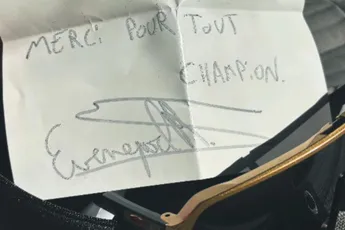 MERCi POUR TOUT
CHAMPiON.
Evenepoel R.